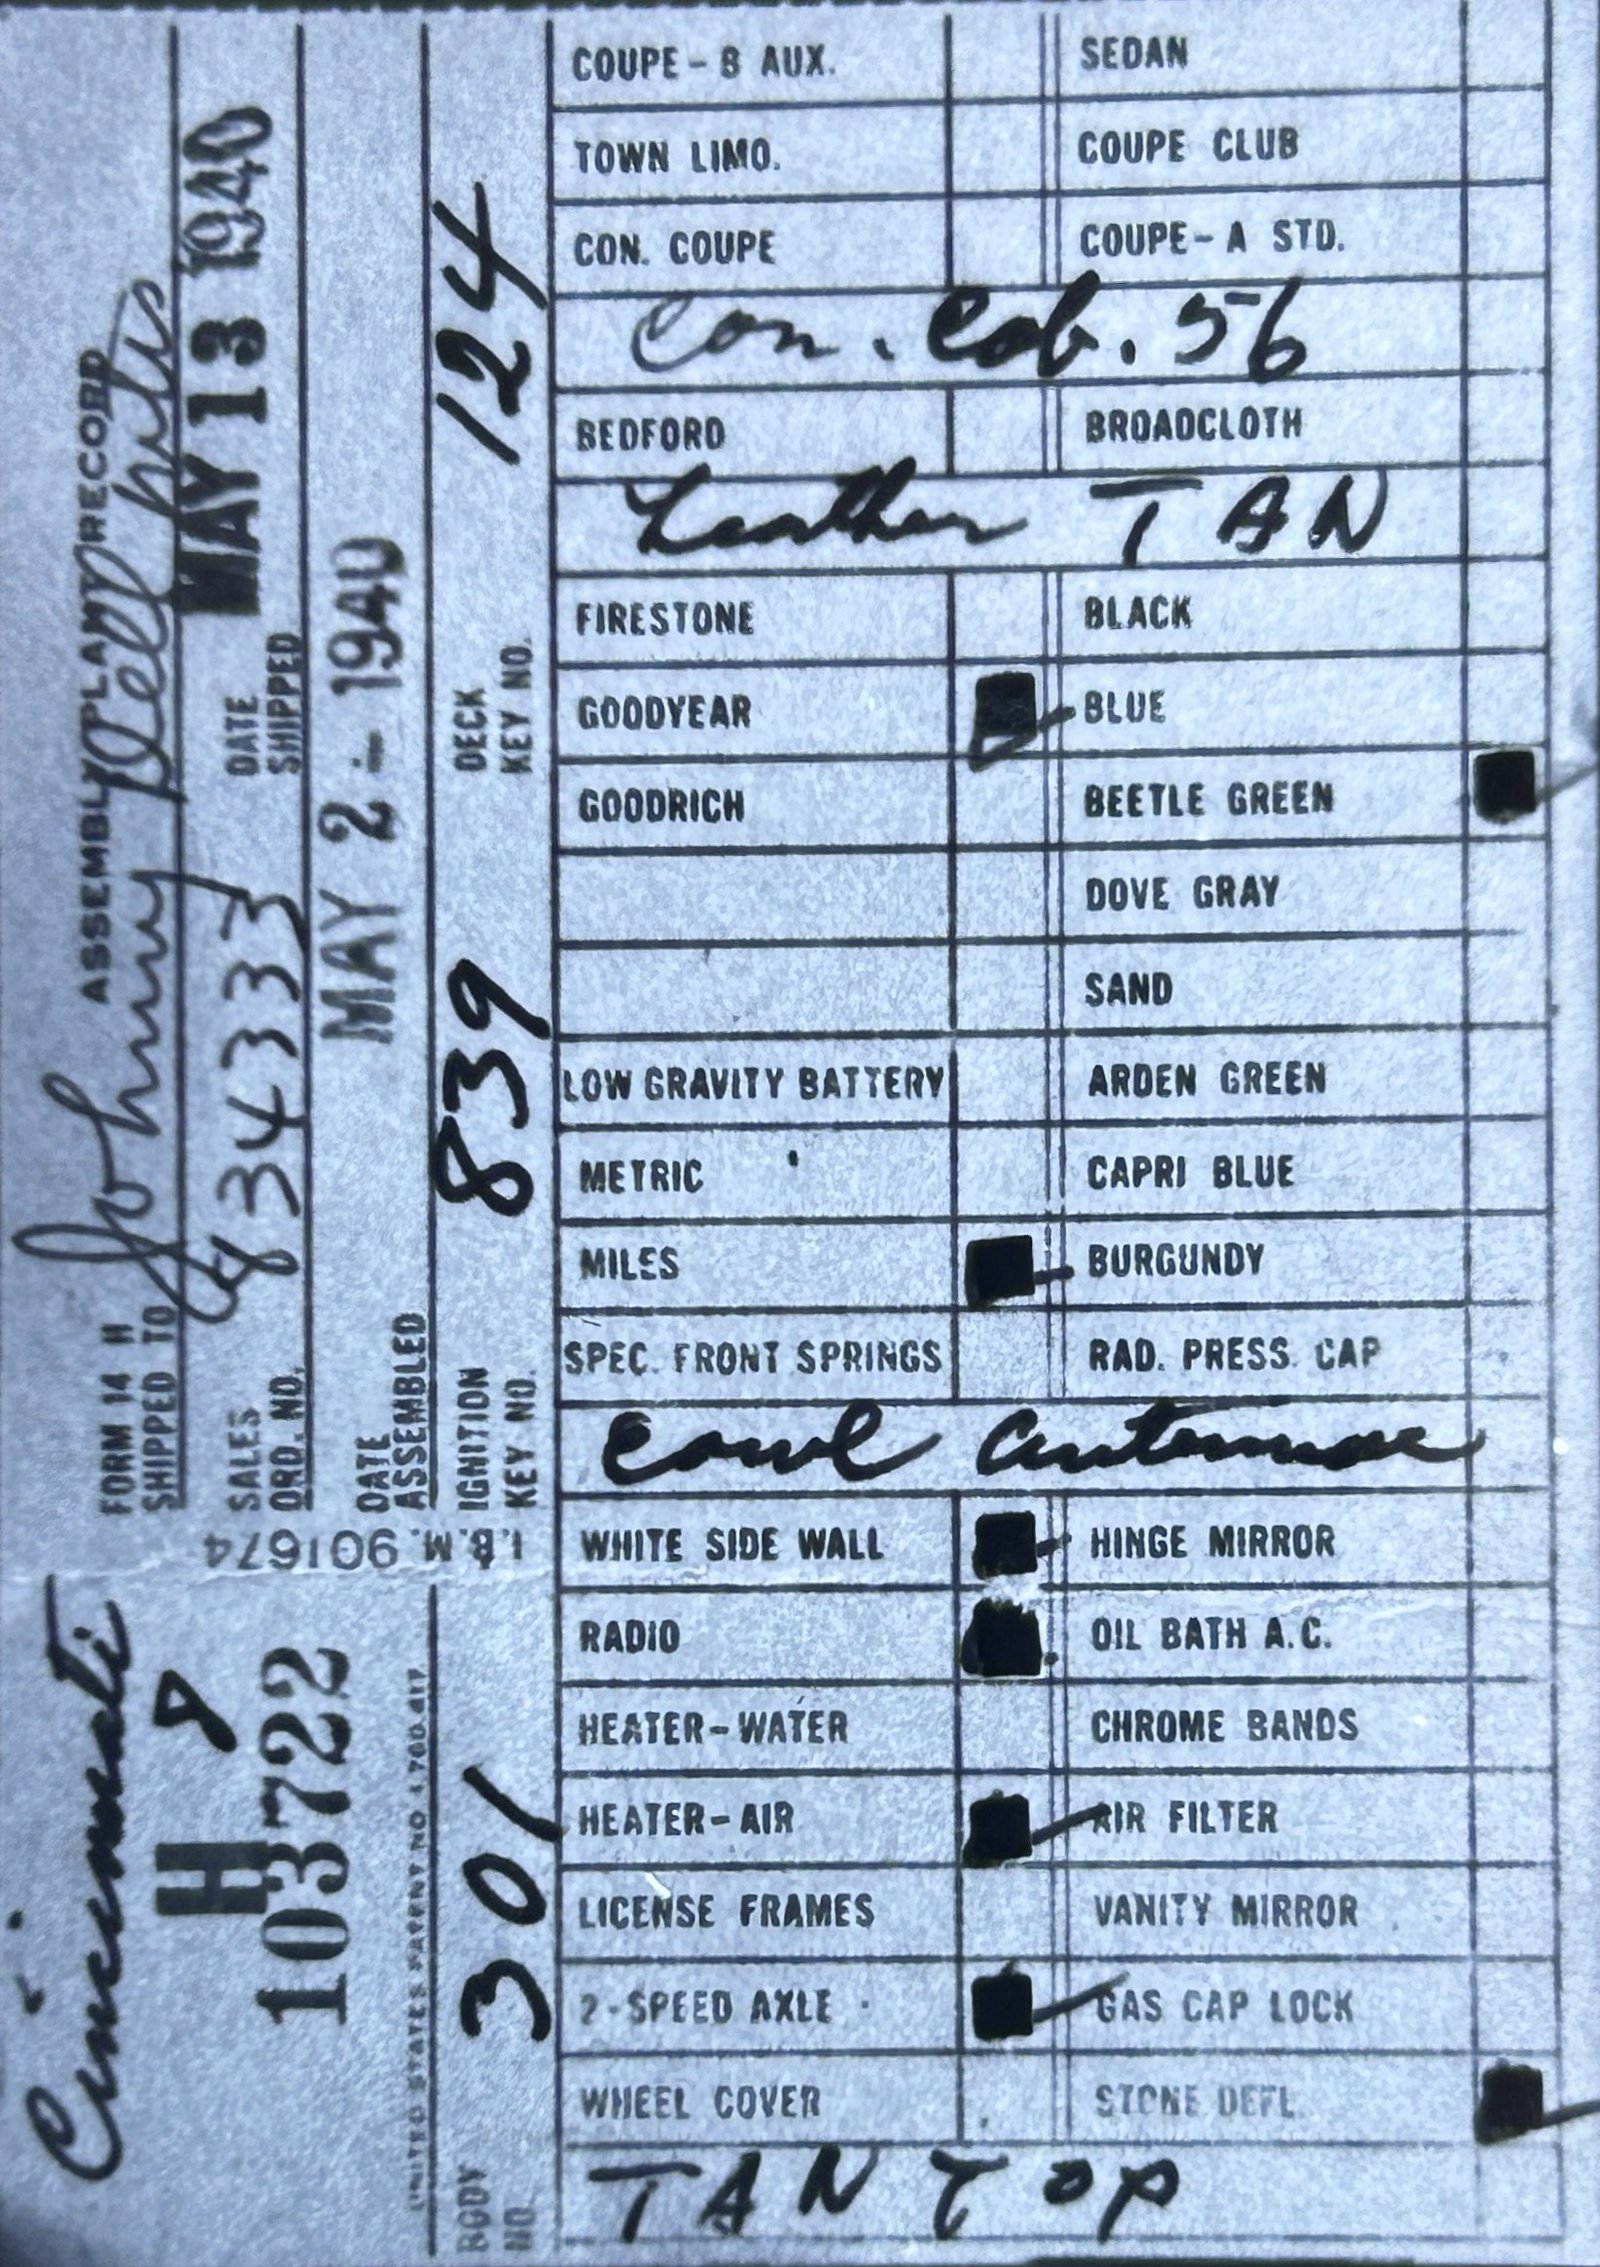 ASSEMBLY PLANT RECORD
FORM 14 H
SHIPPED TO
Johnny
Cincinnati
SALES
ORD. NO.
34333
DATE
SHIPPED
MAY 13 1940
DATE
ASSEMBLED
MAY 2 - 1940
IGNITION
KEY NO.
839
DECK
KEY NO.
124
I.B.M. 901674
H 8
103722
UNITED STATES PATENT NO
BODY
NO.
301
COUPE - B AUX. SEDAN
TOWN LIMO. COUPE CLUB
CON. COUPE COUPE - A STD.
Con. Cob. 56
BEDFORD BROADCLOTH
Leather TAN
FIRESTONE BLACK
GOODYEAR BLUE
GOODRICH BEETLE GREEN
DOVE GRAY
SAND
LOW GRAVITY BATTERY ARDEN GREEN
METRIC CAPRI BLUE
MILES BURGUNDY
SPEC. FRONT SPRINGS RAD. PRESS. CAP
Cowl antennae
WHITE SIDE WALL HINGE MIRROR
RADIO OIL BATH A.C.
HEATER - WATER CHROME BANDS
HEATER - AIR AIR FILTER
LICENSE FRAMES VANITY MIRROR
2 - SPEED AXLE GAS CAP LOCK
WHEEL COVER STONE DEFL.
TAN TOP